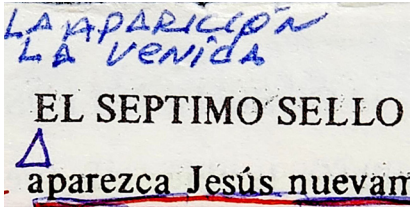 LA APARICIÓN
LA VENIDA
EL SEPTIMO SELLO
aparezca Jesús nuevam